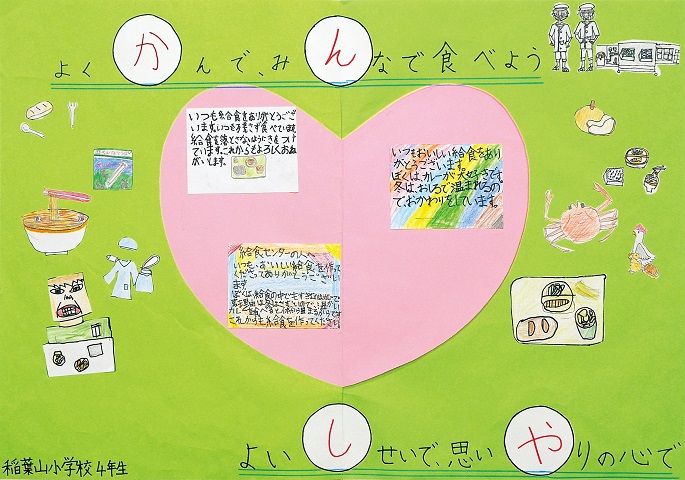 よくかんで、みんなで食べよう
いつも給食をありがとうござい
ます。いつも
給食を
ています。これからもよろしくおね
がいします。
いつもおいしい給食をあり
がとうございます。
ぼくは、カレーが大好きです。
冬は、おしるで温まれるの
でおかわりをしています。
給食センターの人へ
いつも、おいしい給食を作って
くださってありがとうござい
ます
ぼくは、給食の中で
カレーを食べると、体が温まるからです
これからも給食を作ってください
よいしせいで、思いやりの心で
稲葉山小学校4年生